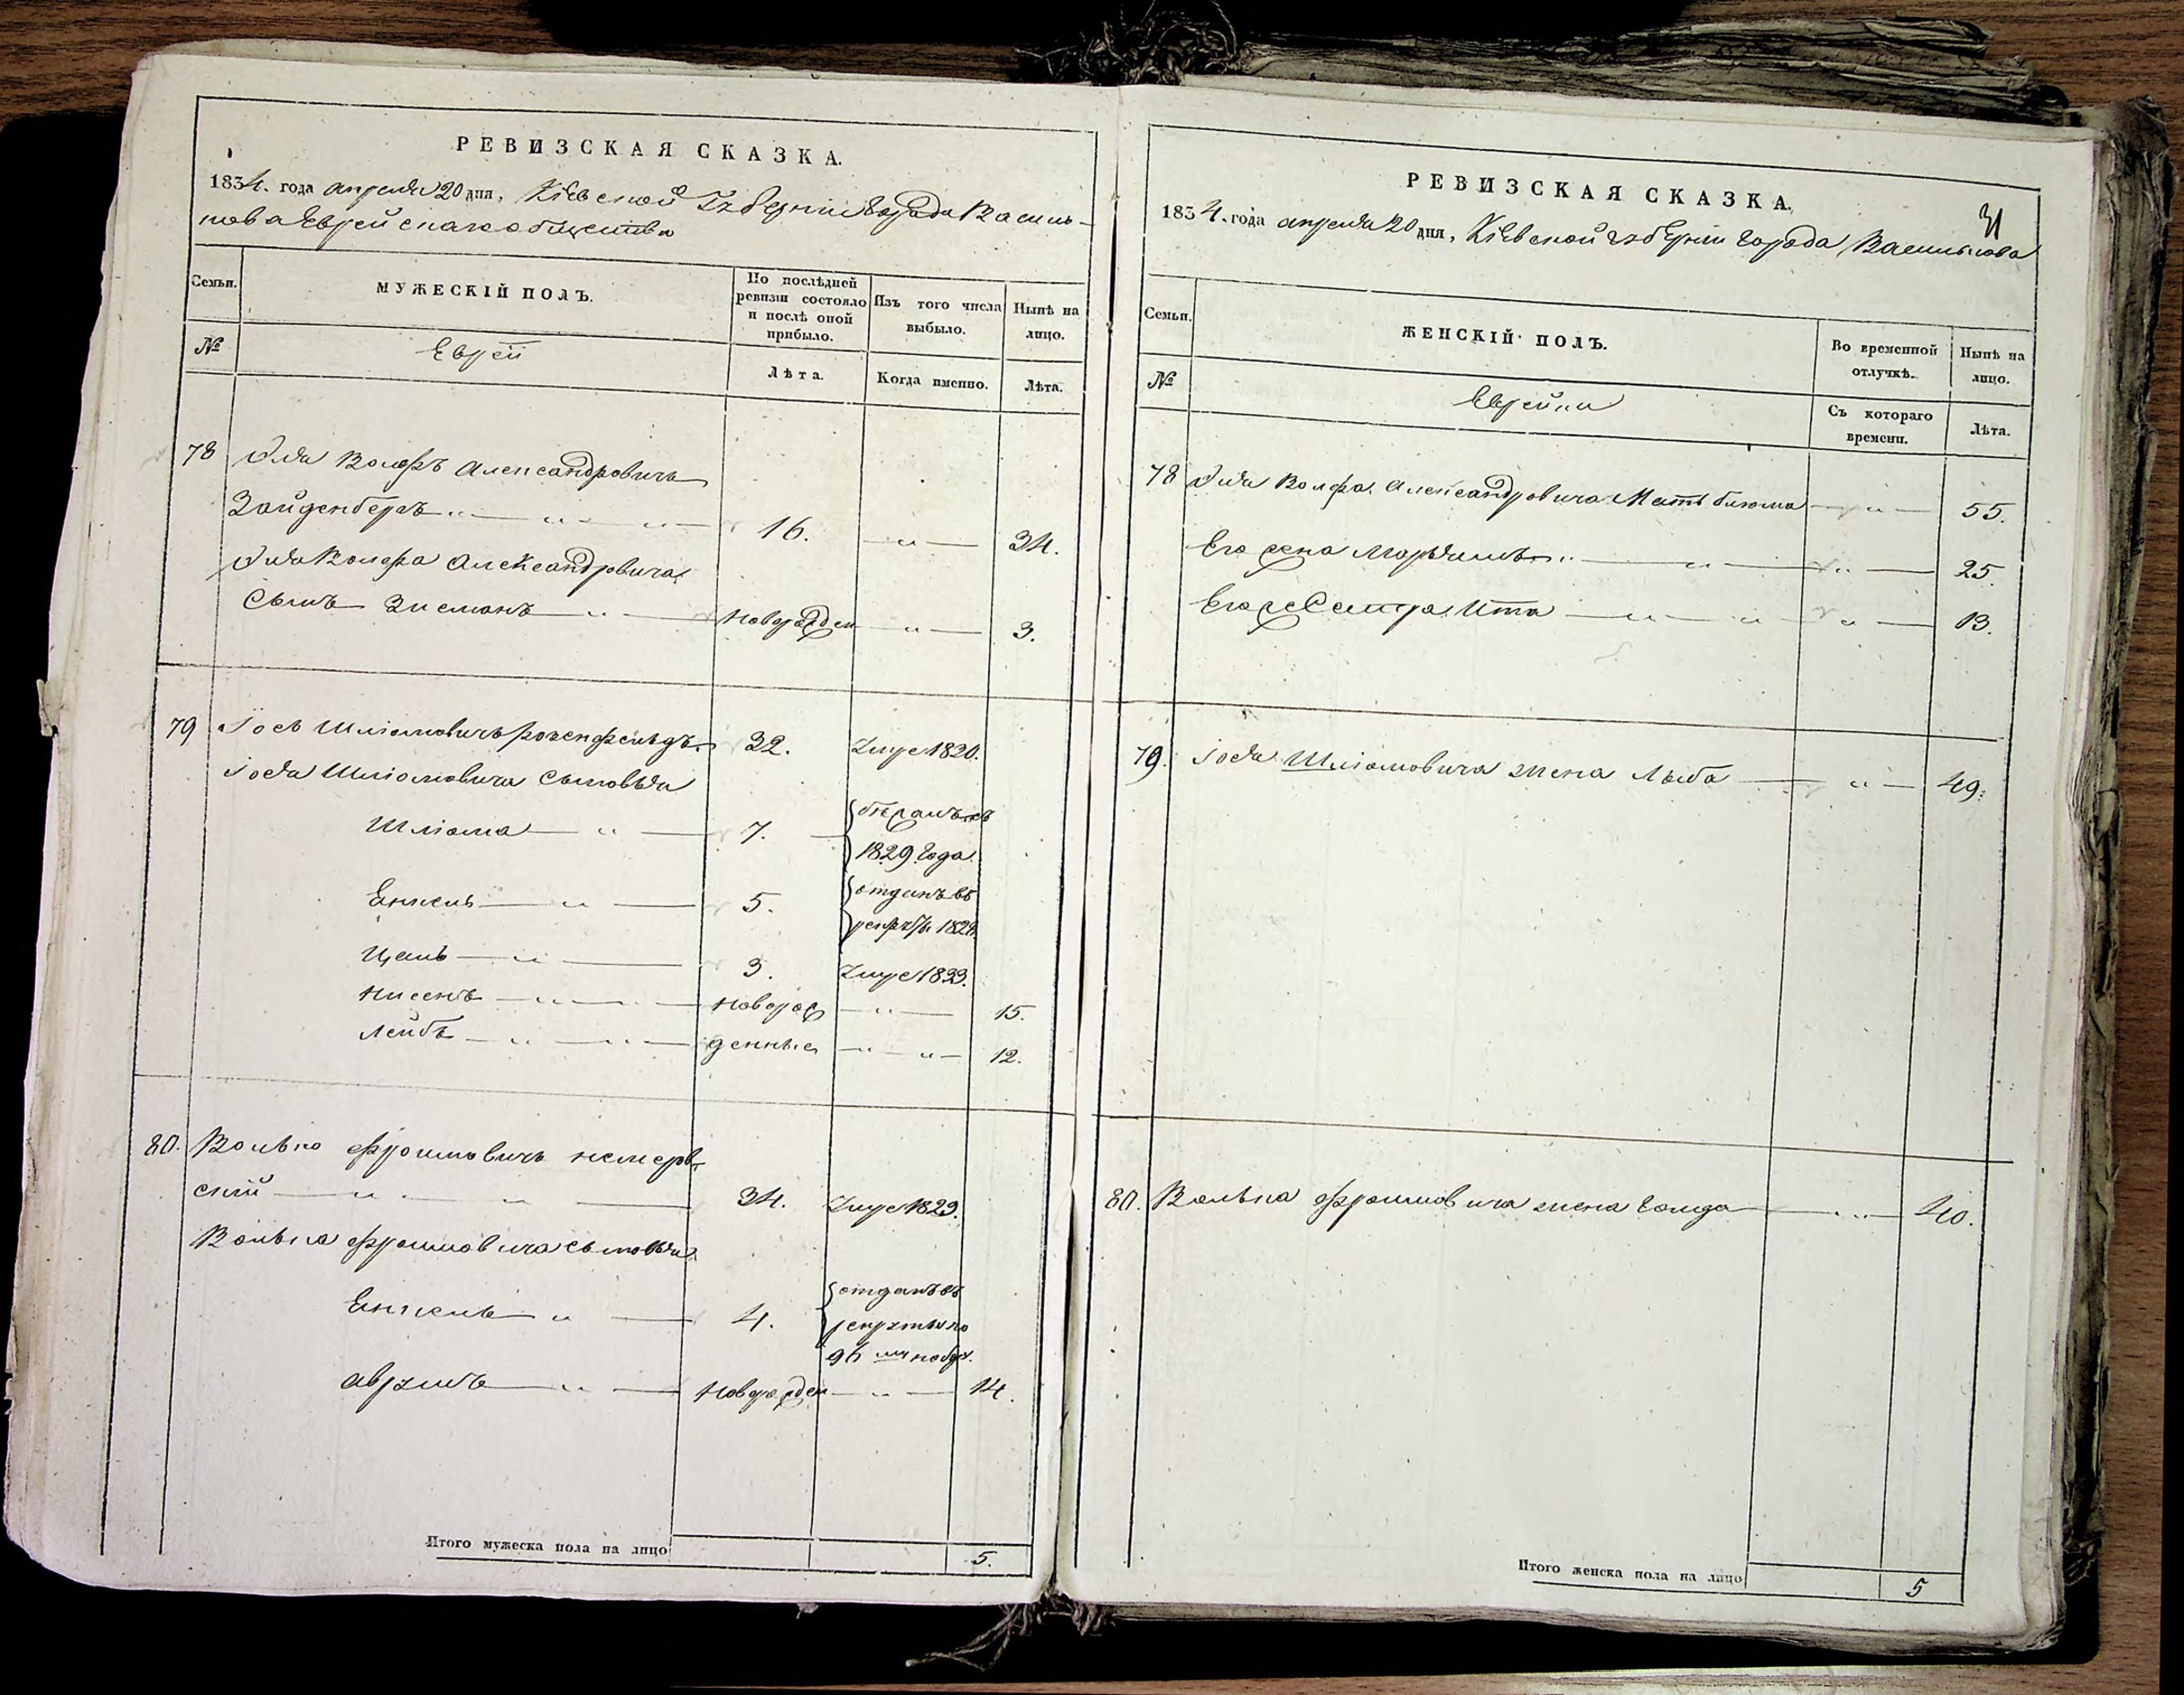 РЕВИЗСКАЯ СКАЗКА.
1834. года апреля 20 дня, Кіевской Губерніи города Василь-
кова Еврейскаго общества
Семьи.
МУЖЕСКІЙ ПОЛЪ.
По послѣдней ревизіи состояло и послѣ оной прибыло.
Изъ того числа выбыло.
Нынѣ на лицо.
№
Евреи
Лѣта.
Когда именно.
Лѣта.
78 Волфъ Александровичъ
Зайденберъ 16. 34.
Волфа Александровича
Сынъ Зисманъ новорожден 3.
79 Іось Шліомовичъ розенфельдъ 32. Умре 1820.
Іося Шліомовича Сыновья
Шліома 7. бѣжалъ съ
1829 года
Енкель 5. отданъ въ
рекруты 1828.
Цаль 3. Умре 1833.
Нисенъ новорож 15.
Лейбъ денные 12.
80. Волько Фроимовичъ немеров
скій 34. Умре 1829.
Волька Фроимовича сыновья
Енкель 4. отданъ въ
рекруты по
96 му набор.
Аврумъ новорожден 14.
Итого мужеска пола на лицо 5.
РЕВИЗСКАЯ СКАЗКА.
31
1834. года апреля 20 дня, Кіевской губерніи города Василькова
Семьи.
ЖЕНСКІЙ ПОЛЪ.
Во временной отлучкѣ.
Нынѣ на лицо.
№
Еврейки
Съ котораго времени.
Лѣта.
78 Волфа Александровича Мать блюма 55.
Его жена Марьямъ 25.
Его же Сестра Ита 13.
79. Іося Шліомовича жена Лыба 49.
80. Волька Фроимовича жена Голда 40.
Итого женска пола на лицо 5